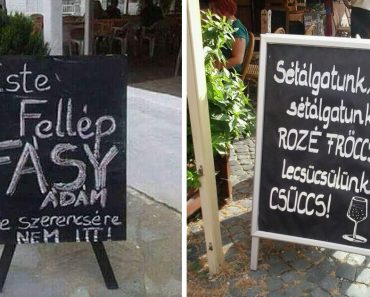 iste
Fellép
FÁSY
ÁDÁM
e szerencsére
NEM ITT!
Sétálgatunk,
sétálgatunk
ROZÉ FRÖCCS
lecsücsülünk
CSÜCCS!